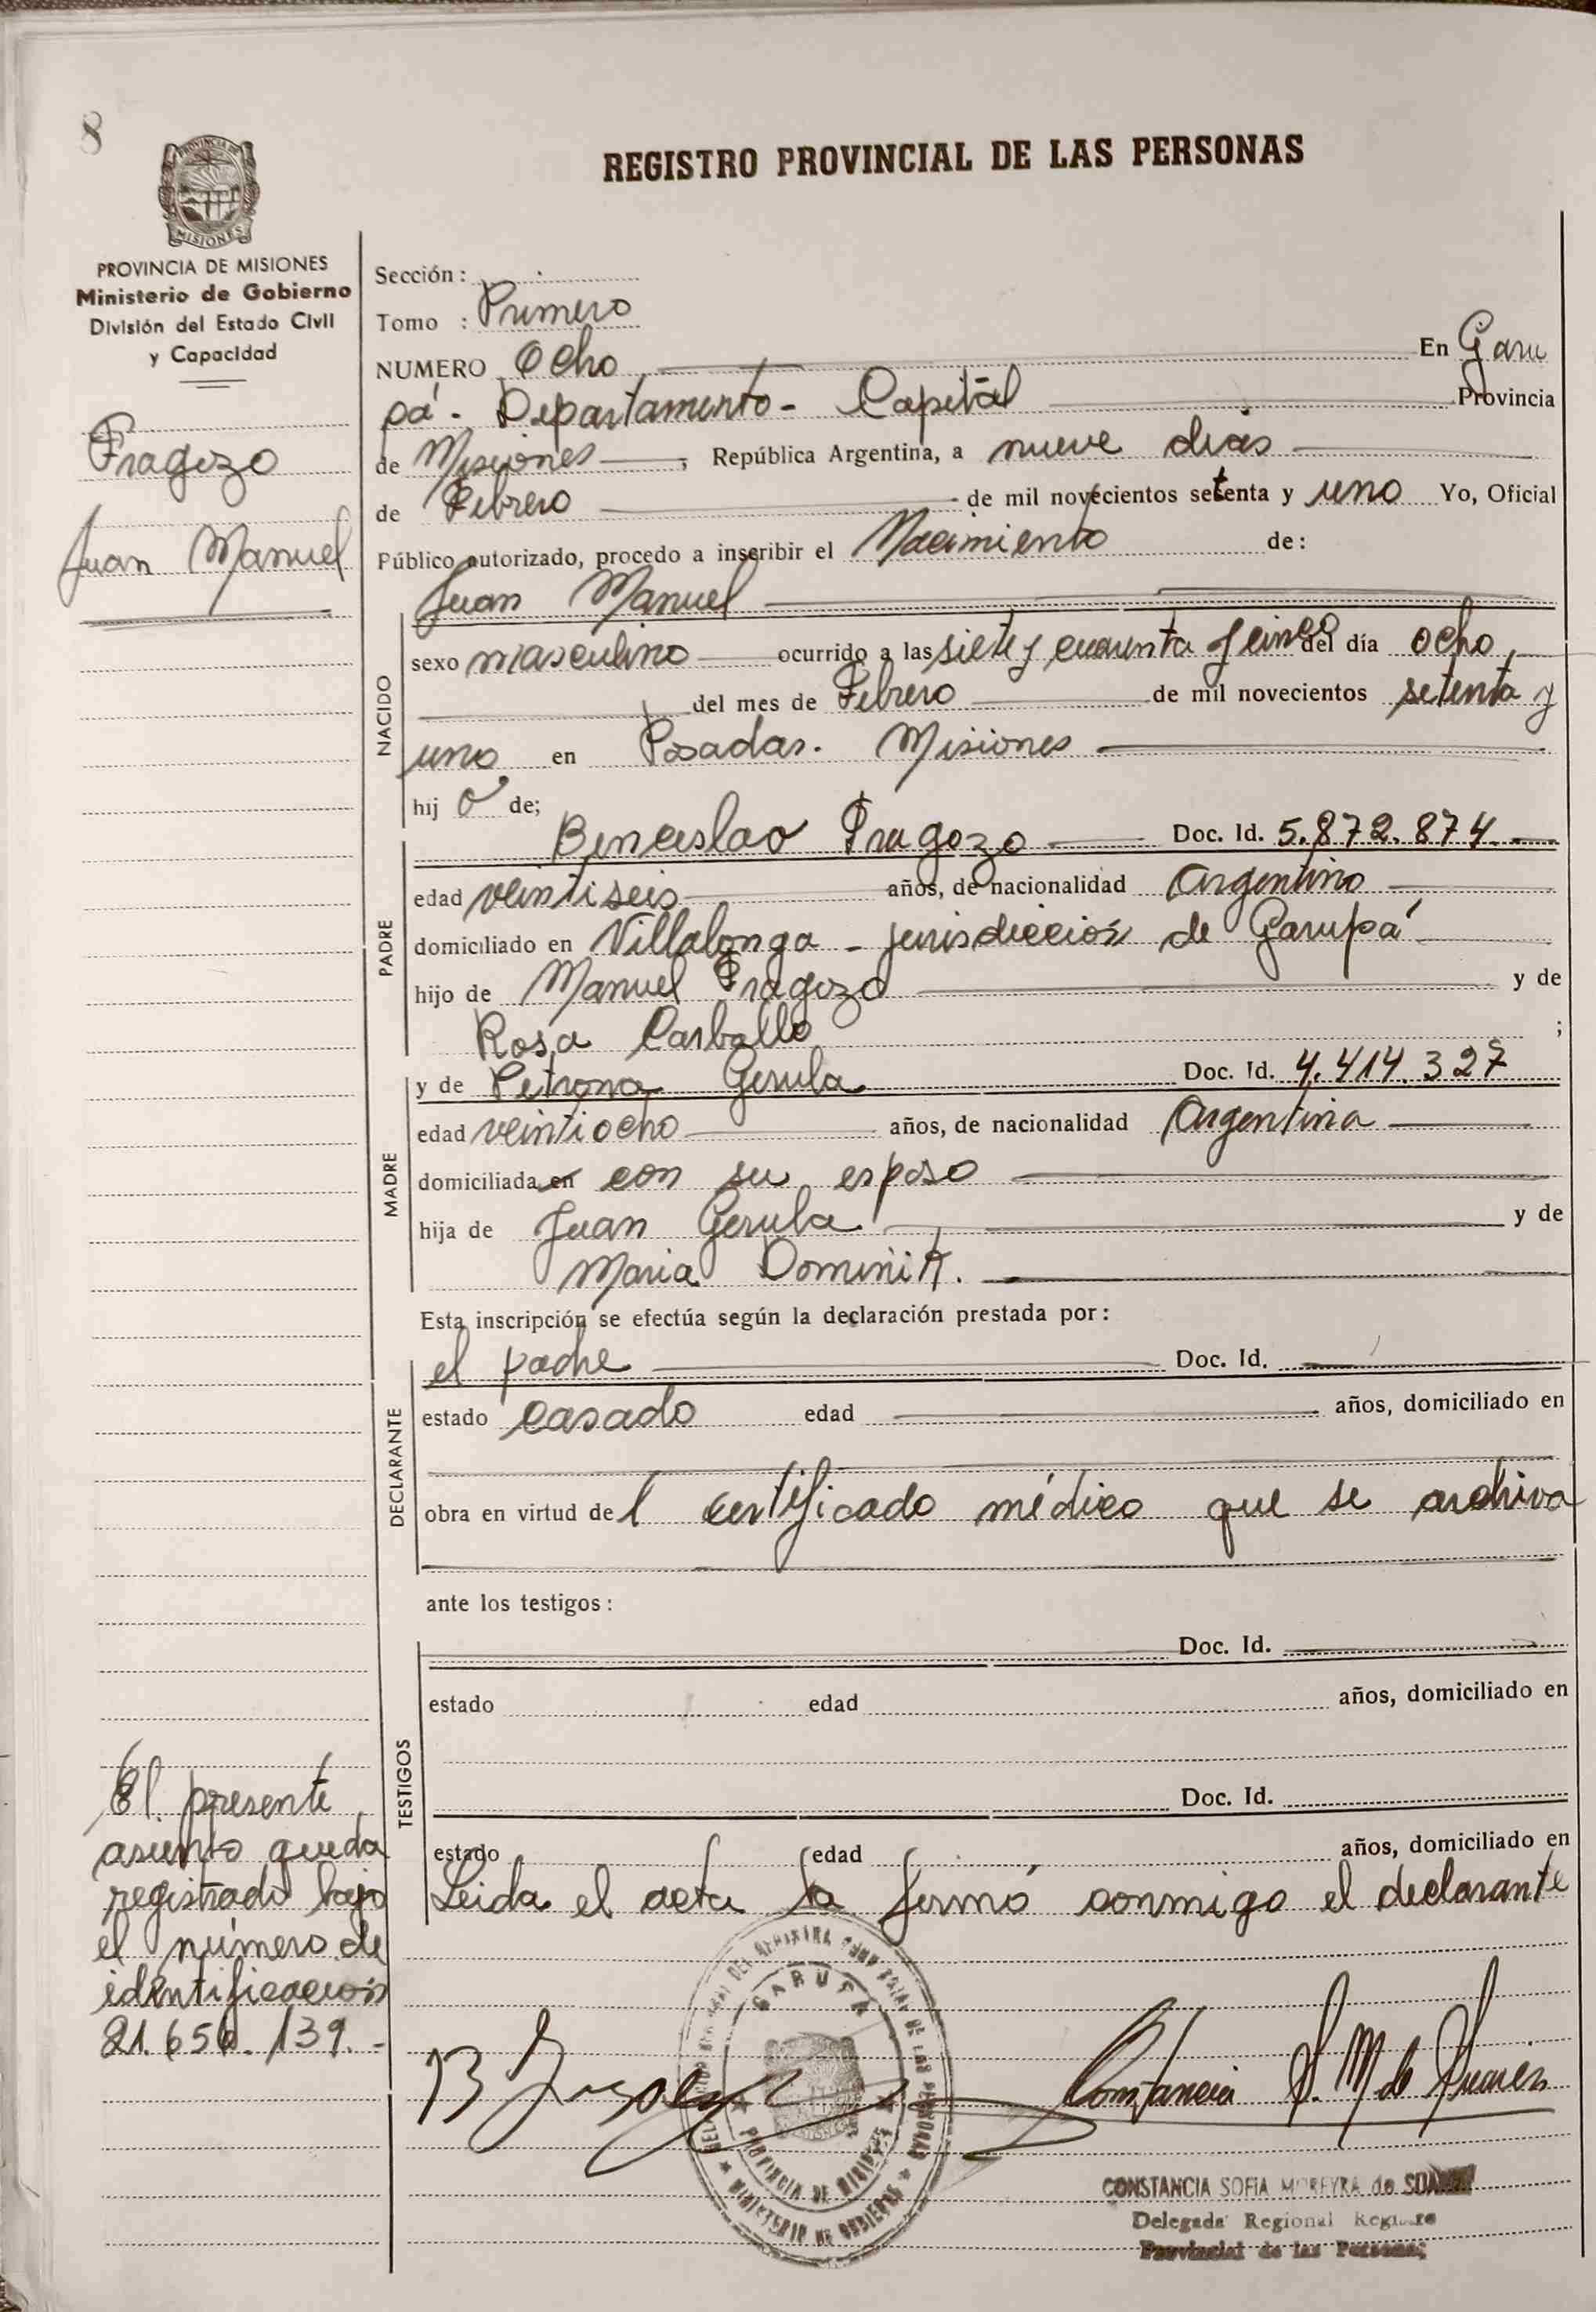 8
REGISTRO PROVINCIAL DE LAS PERSONAS
PROVINCIA DE
MISIONES
PROVINCIA DE MISIONES
Ministerio de Gobierno
División del Estado Civil
y Capacidad
Fragozo
Juan Manuel
Sección :
Tomo : Primero
NUMERO Ocho En Garu
pá - Departamento - Capital Provincia
de Misiones , República Argentina, a nueve dias
de Febrero de mil novecientos setenta y uno Yo, Oficial
Público autorizado, procedo a inscribir el Nacimiento de :
Juan Manuel
NACIDO
sexo masculino ocurrido a las siete y cuarenta y cinco del día ocho
del mes de Febrero de mil novecientos setenta y
uno en Posadas. Misiones
hij o de;
PADRE
Benceslao Fragozo Doc. Id. 5.872.874
edad veintiseis años, de nacionalidad Argentino
domiciliado en Villalonga - jurisdiccion de Garupá
hijo de Manuel Fragozo y de
Rosa Carballo ;
MADRE
y de Petrona Gerula Doc. Id. 4.414.327
edad veintiocho años, de nacionalidad Argentina
domiciliada en con su esposo
hija de Juan Gerula y de
Maria Dominik.
Esta inscripción se efectúa según la declaración prestada por :
DECLARANTE
el padre Doc. Id.
estado casado edad años, domiciliado en
obra en virtud de l certificado médico que se archiva
ante los testigos :
TESTIGOS
Doc. Id.
estado edad años, domiciliado en
Doc. Id.
estado edad años, domiciliado en
Leida el acta la firmó conmigo el declarante
El presente
asiento queda
registrado bajo
el número de
identificación
21.650.139.-
GARUPA
PROVINCIA DE MISIONES
MINISTERIO DE GOBIERNO
B Fragozo
Constancia S. M de Suarez
CONSTANCIA SOFIA MOREYRA de
Delegada Regional Registro
Provincial de las Personas